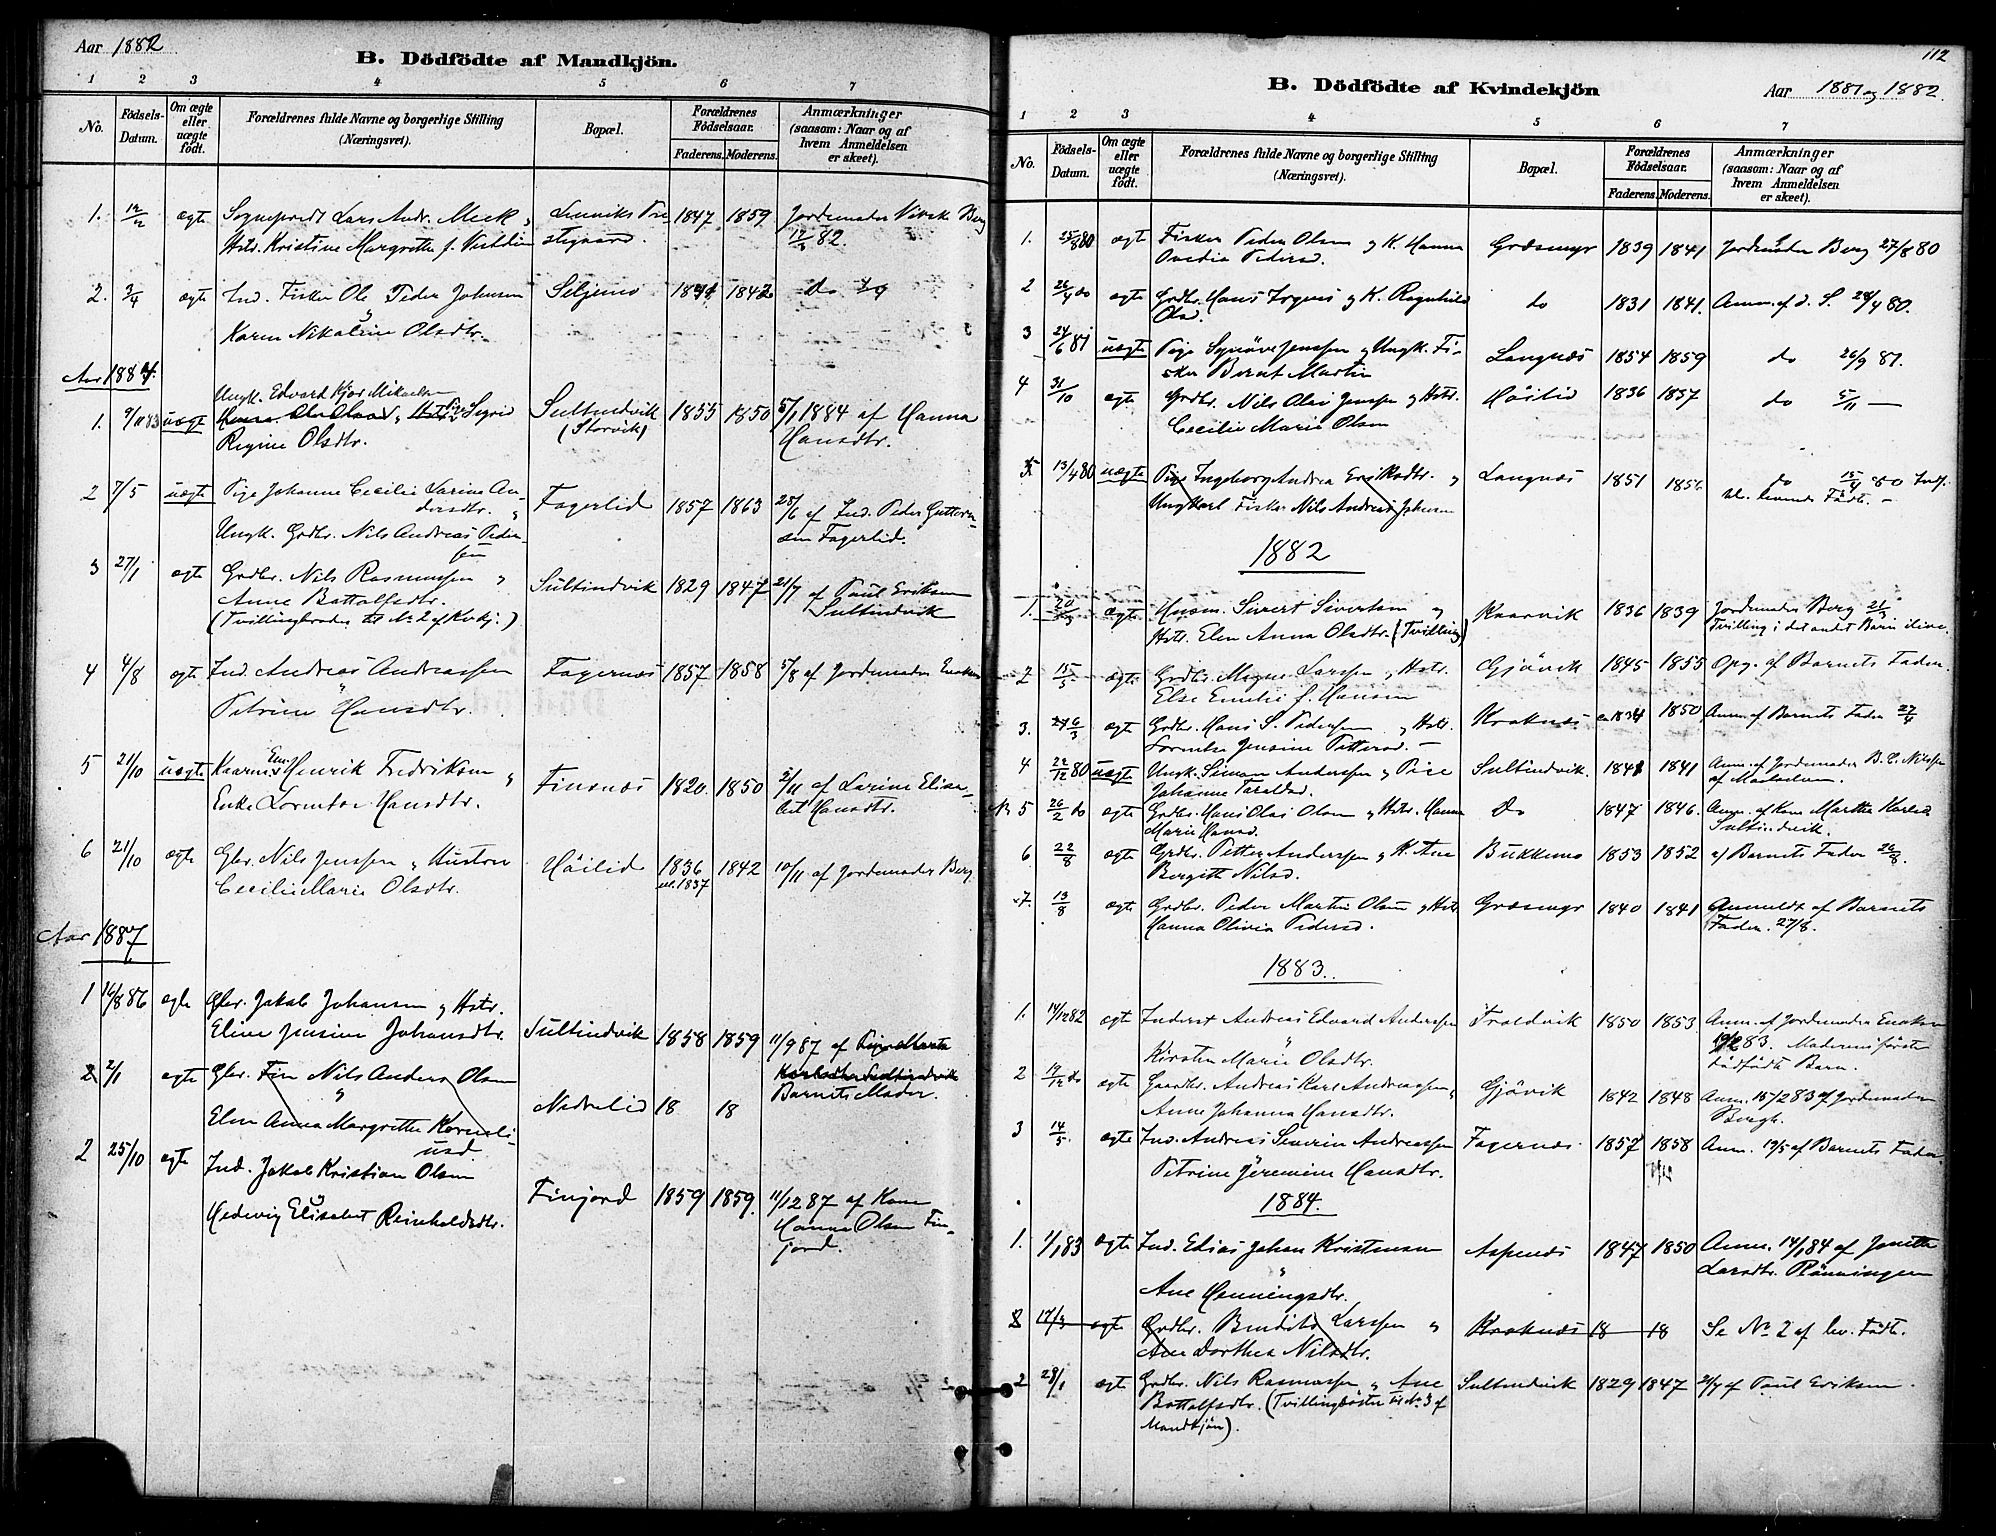 Aar 1882
B. Dödfödte af Mandkjön.
1 2 3 4 5 6 7
No. Födsels-Datum. Om ægte eller uægte födt. Forældrenes fulde Navne og borgerlige Stilling (Næringsvei). Bopæl. Forældrenes Födselsaar. Faderens. Moderens. Anmærkninger (saasom: Naar og af hvem Anmeldelsen er skeet).
1. 12/2 ægte Sogneprest Lars Andr. Meek 1847 1859 Jordemoder Berg
Hstr. Kristine Margrethe f. 12/3 82.
2. 3/4 ægte Ind. Fisker Ole Peder Johnsen Seljenes 1842 do do
Karen Nikoline Olsdtr.
Aar 1884.
Ungk. Edvard Kjos Mikaelsen
1. 9/11 83 uægte Sigrid Sultindvik 1855 1850 5/1 1884 af Hanna
Regine Olsdtr. (Storvik) Hansdtr.
2 7/5 uægte Pige Johanne Cecilie Larine An-
dersdtr. Fagerlid 1857 1863 28/6 af Ind. Peder
Ungk. Grdbr. Nils Andreas Peder-
sen Fagerlid.
3 27/1 ægte Grdbr. Nils Rasmussen Sultindvik 1829 1847 21/7 af Paul Eriksen
Anne Bottolfsdtr. Sultindvik
(Tvillingbroder til No 2 af Kvkj.)
4 4/8 ægte Ind. Andreas Andreassen Fagernes 1857 1858 5/8 af Jordemoder
Petrine Hansdtr.
5 21/10 uægte Henrik Fredriksen Finsnes 1820. 1850 2/11 af Larine Elisa-
Enke Lorentse Hansdtr. bet Hansdtr.
6 21/10 ægte Gbr. Nils Jenssen Hustru Höilid 1836 1842 10/11 af Jordemoder Berg.
Cecilie Marie Olsdtr. 1837
Aar 1887
1 16/8 86 ægte Gbr. Jakob Johansen og Hstr.
Eline Jensine Johansdtr. Sultindvik 1858 1859 11/9 87 af
2 2/1 ægte Gbr. Fin Nils Anders Olsen Barnets Moder.
Elen Anna Margrethe Korneli- Nedrelid 18 18
usd
2 25/10 ægte Ind. Jakob Kristian Olsen
Hedevig Elisabet Reinholdsdtr. Finjord 1859 1859. 11/12 87 af Kone
Hanna Olsen Fin-
jord.
112
B. Dödfödte af Kvindekjön
Aar 1881 og 1882.
1 2 3 4 5 6 7
No. Födsels-Datum. Om ægte eller uægte födt. Forældrenes fulde Navne og borgerlige Stilling (Næringsvei). Bopæl. Forældrenes Födselsaar. Faderens. Moderens. Anmærkninger (saasom: Naar og af hvem Anmeldelsen er skeet).
1. 25/8 80 ægte Fisker Peder Olsen og K. Hanna Græsmyr 1839 1841 Jordemoder Berg 27/8 80
Ovedia Pedersd.
2 26/4 do ægte Grdbr. Hans og K. Ragnhild do 1831 1841. Anm. af d. S. 28/4 80.
Olsd.
3 24/6 81 uægte Pige Synöve Jenssen og Ungk. Fi- Langnes 1854 1859 do 26/9 81.
sker Bernt Martin
4 31/10 ægte Grdbr. Nils Olai Jenssen og Hstr. Höilid 1836 1837 do 5/11 —
Cecilie Marie Olsen
5 13/4 80 uægte Pige Ingeborg Andrea Eriksdtr. og Langnes 1851 1856 do 15/4 80
Ungkarl Fisker Nils Andreas Johnsen levende Födte. —
1882
1. ægte Husm. Sivert Sivertsen og Kaarvik 1836 1839 Jordemoder Berg 21/3
Hstr. Elen Anna Olsdtr. (Tvilling) Tvilling i det andet Barn ilive.
2 15/5 ægte Grdbr. Mogens Larssen og Hstr. Gjövik 1845 1855 Opg. af Barnets Fader.
Else Emilie f. Hansen
3. ægte Grdbr. Hans S. Pedersen og Hstr. Kraknes 1850 Anm. af Barnets Fader 27/4
Lorentse Jensine Pettersd. —
4 22/12 80 uægte Ungk. Simon Anderssen og Pige Sultindvik. 1841 Anm. af Jordemoder B. C. Nilssen
Johanne Taraldsd. af
5 26/2 do ægte Grdbr. Hans Olai Olsen og Hstr. Hanna Do 1847 1846. Anm. af Kone Marthe
Marie Hansd. Sultindvik.
6. 22/8 ægte Grdbr. Petter Anderssen og K. Ane Bukkenes 1853 1852 af Barnets Fader 26/8.
Bergitte Nilsd.
7. 13/8 ægte Grdbr. Peder Martin Olsen og Hstr. Græsmyr 1840 1841 Anmeldt af Barnets
Hanna Olivia Pedersd. Fader. 27/8.
1883.
1. 14/12 82 ægte Inderst Andreas Edvard Anderssen Troldvik 1850 1853. Anm. af Jordemoder
Kirsten Marie Olsdtr. 83. Moderens förste
dödfödte Barn.
2 ægte Gaardbr. Andreas Karl Andreassen Gjövik 1842 1848 Anm. 15/2 83 af Jordemoder
Anne Johanna Hansdtr. Bergh.
3 14/5. ægte Ind. Andreas Severin Andreassen Fagernes 1857 1858 Anm. 19/5 af Barnets Fader.
Petrine Jeremine Hansdtr.
1884.
1. 1/1 83 ægte Ind. Elias Johan Kristensen Aspenes 1847 1850 Anm. 14/1 84 af
Ane Henningsdtr. Larsdtr. Rönningen
2 17/3 ægte Grdbr. Larssen og Kraknes 18 18 Se No 2 af lev. Födte.
Ane Dorthea Nilsdtr.
2 28/1 ægte Grdbr. Nils Rasmussen og Ane Sultindvik 1829 1847 21/7 af Paul Eriksen
Bottolfsdtr. (Tvillingsöster til No 3 af
Mandkjön).